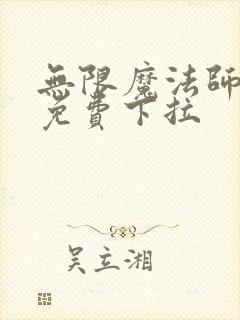 無限魔法師
免費下拉
吳立湘